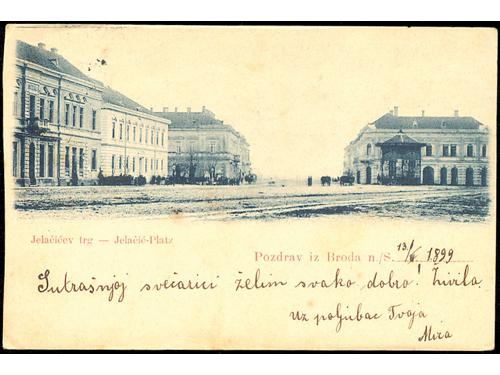 Jelačićev trg — Jelačić-Platz
Pozdrav iz Broda n./S. 1899
Sutrašnjoj svečarici želim svako dobro! Živila
Uz poljubac Tvoja
Mira